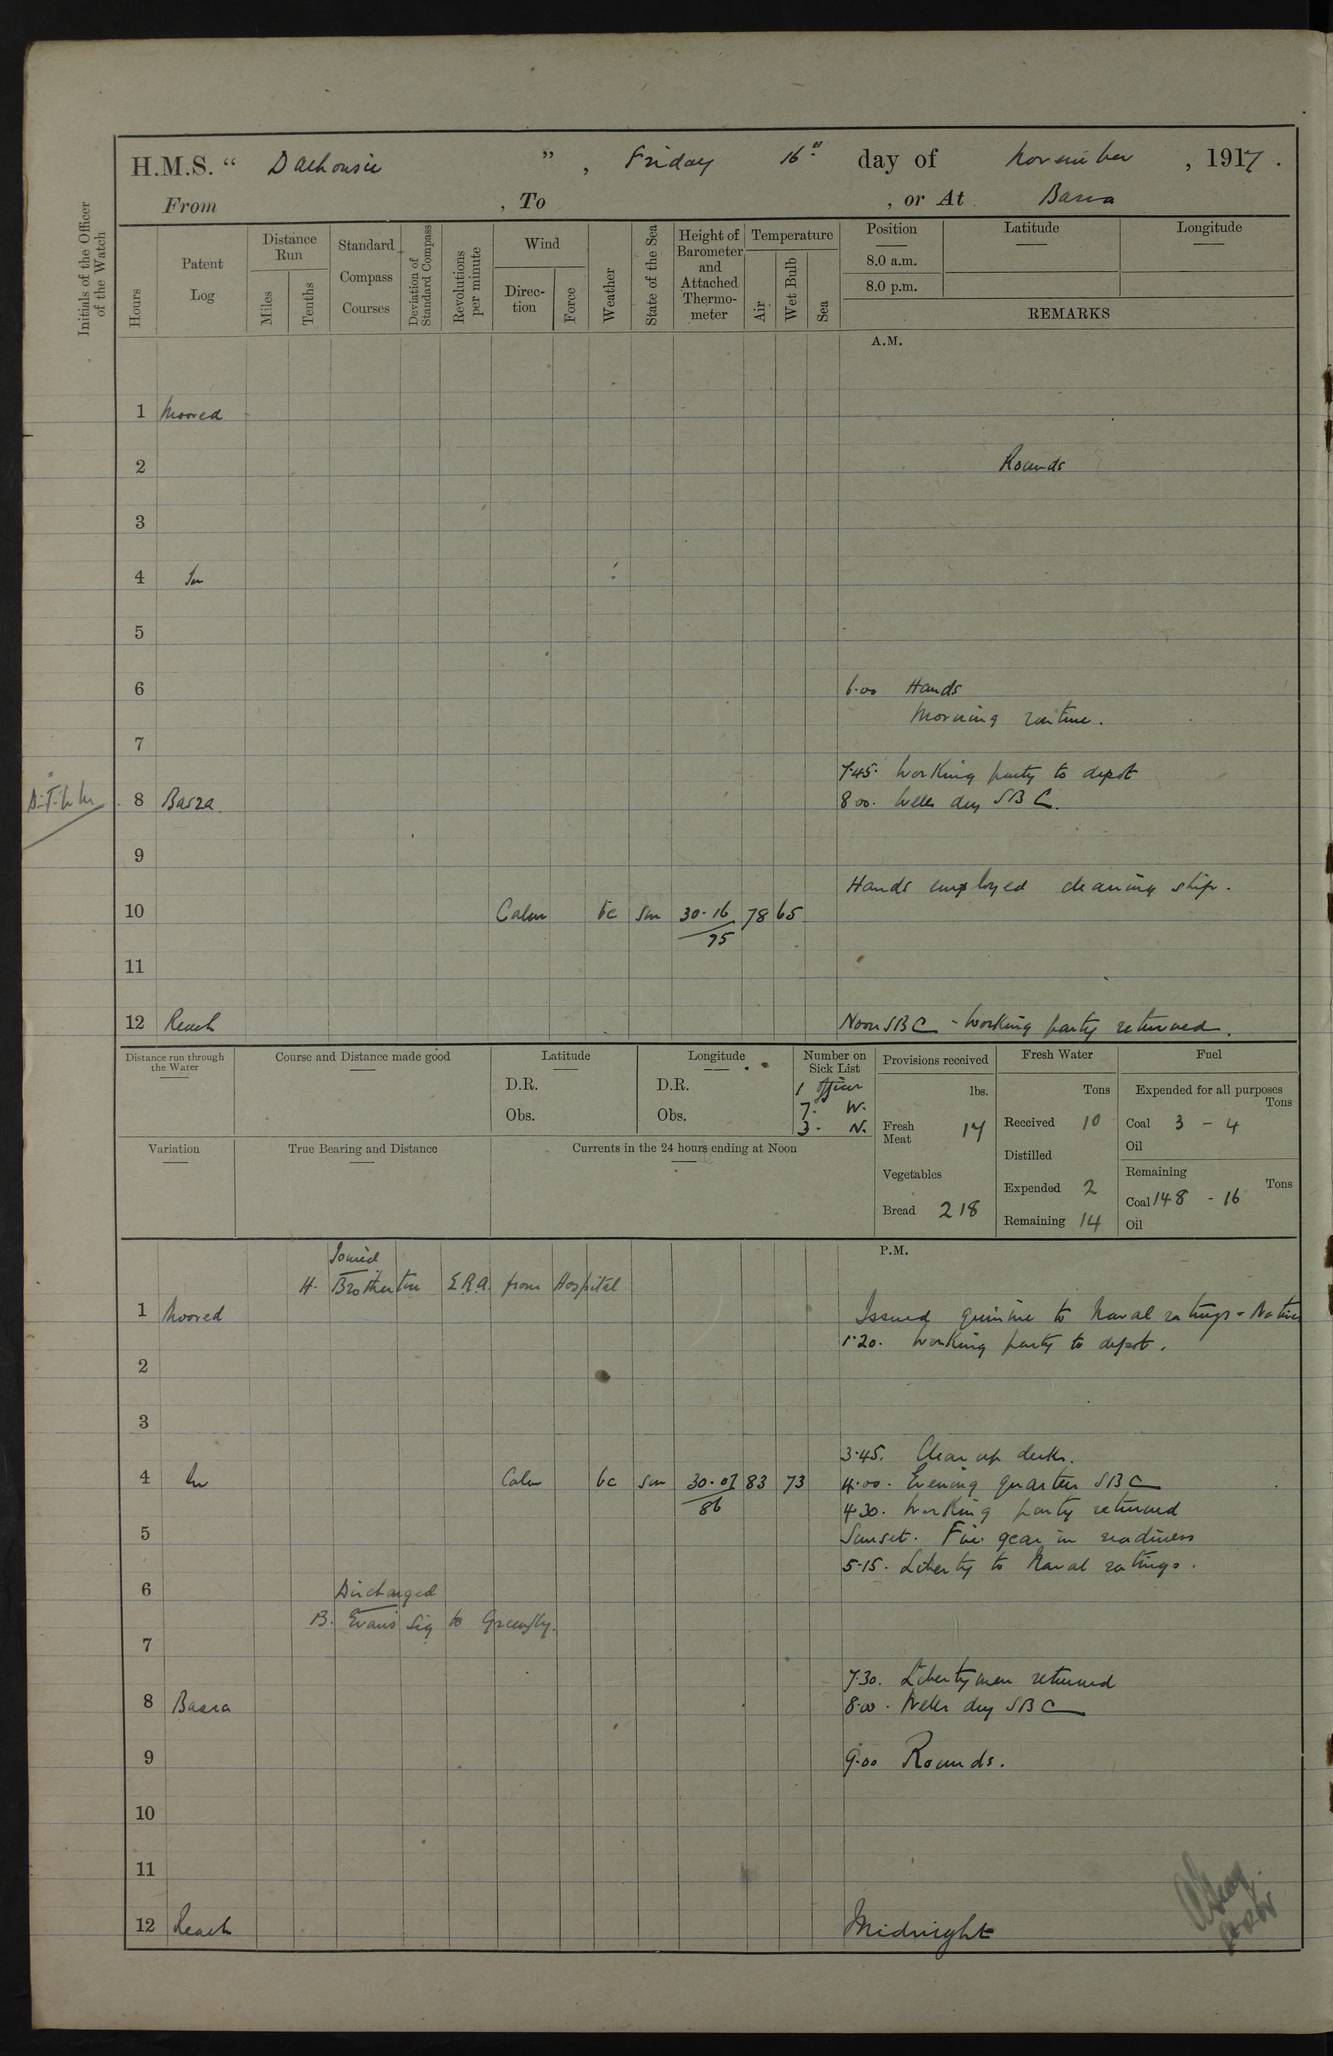 H.M.S. “ Dalhousie ”, Friday 16th day of November, 1917.
From , To , or At Basra
Initials of the Officer of the Watch
Hours
Patent Log
Distance Run
Miles
Tenths
Standard Compass Courses
Deviation of Standard Compass
Revolutions per minute
Wind
Direc-tion
Force
Weather
State of the Sea
Height of Barometer and Attached Thermo-meter
Temperature
Air
Wet Bulb
Sea
Position
8.0 a.m.
8.0 p.m.
Latitude
Longitude
REMARKS
A.M.
1 Moored
2 Rounds
3
4 In
5
6 6.00 Hands
Morning routine.
7
7.45. Working party to depot
8 Basra 8.00. Wells dry SBC.
9
Hands employed cleaning ship.
10 Calm bc sm 30.16 78 65
75
11
12 Reach Noon SBC - Working party returned.
Distance run through the Water
Course and Distance made good
Latitude
D.R.
Obs.
Longitude
D.R.
Obs.
Number on Sick List
1 Officer
7. W.
3. N.
Provisions received
lbs.
Fresh Meat 14
Vegetables
Bread 218
Fresh Water
Tons
Received 10
Distilled
Expended 2
Remaining 14
Fuel
Expended for all purposes
Tons
Coal 3 - 4
Oil
Remaining
Tons
Coal 148 - 16
Oil
Variation
True Bearing and Distance
Currents in the 24 hours ending at Noon
P.M.
Joined
H. Brotherton E.R.A. from Hospital
1 Moored Issued quinine to Naval ratings - Natives
1.20. Working party to depot.
2
3
3.45. Clear up decks.
4 In Calm bc sm 30.07 83 73 4.00. Evening quarters SBC
86
4.30. Working party returned
5 Sunset. Fire gear in readiness
5.15. Liberty to Naval ratings.
6 Discharged
B. Evans Sig to Greenfly.
7
7.30. Liberty men returned
8 Basra 8.00. Wells dry SBC
9 9.00 Rounds.
10
11
12 Reach Midnight